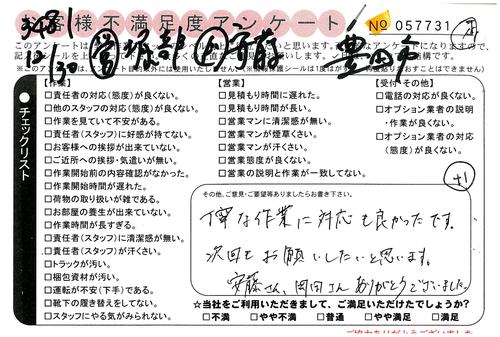 お客様不満足度アンケート
No 057731
12/30
豊田市
チェックリスト
【作業】
□責任者の対応(態度)が良くない。
□他のスタッフの対応(態度)が良くない。
□作業を見ていて不安がある。
□責任者(スタッフ)に好感が持てない。
□お客様への挨拶が出来ていない。
□ご近所への挨拶・気遣いが無い。
□作業開始前の内容確認がなかった。
□作業開始時間が遅れた。
□荷物の取り扱いが雑である。
□お部屋の養生が出来ていない。
□作業時間が長すぎる。
□責任者(スタッフ)に清潔感が無い。
□責任者(スタッフ)が汗くさい。
□トラックが汚い。
□梱包資材が汚い。
□運転が不安(下手)である。
□靴下の履き替えをしてない。
□スタッフにやる気がみられない。
【営業】
□見積もり時間に遅れた。
□見積もり時間が長い。
□営業マンに清潔感が無い。
□営業マンが煙草くさい。
□営業マンが汗くさい。
□営業態度が良くない。
□営業の説明と作業が一致してない。
【受付 その他】
□電話の対応が良くない。
□オプション業者の説明
・作業が良くない。
□オプション業者の対応
(態度)が良くない。
その他、ご意見・ご要望等ありましたらお書き下さい。
丁寧な作業に対応も良かったです。
次回もお願いしたいと思います。
安藤さん、岡田さん ありがとうございました。
☆当社をご利用いただきまして、ご満足いただけたでしょうか?
□不満 □やや不満 □普通 □やや満足 □満足
ご協力ありがとうございました